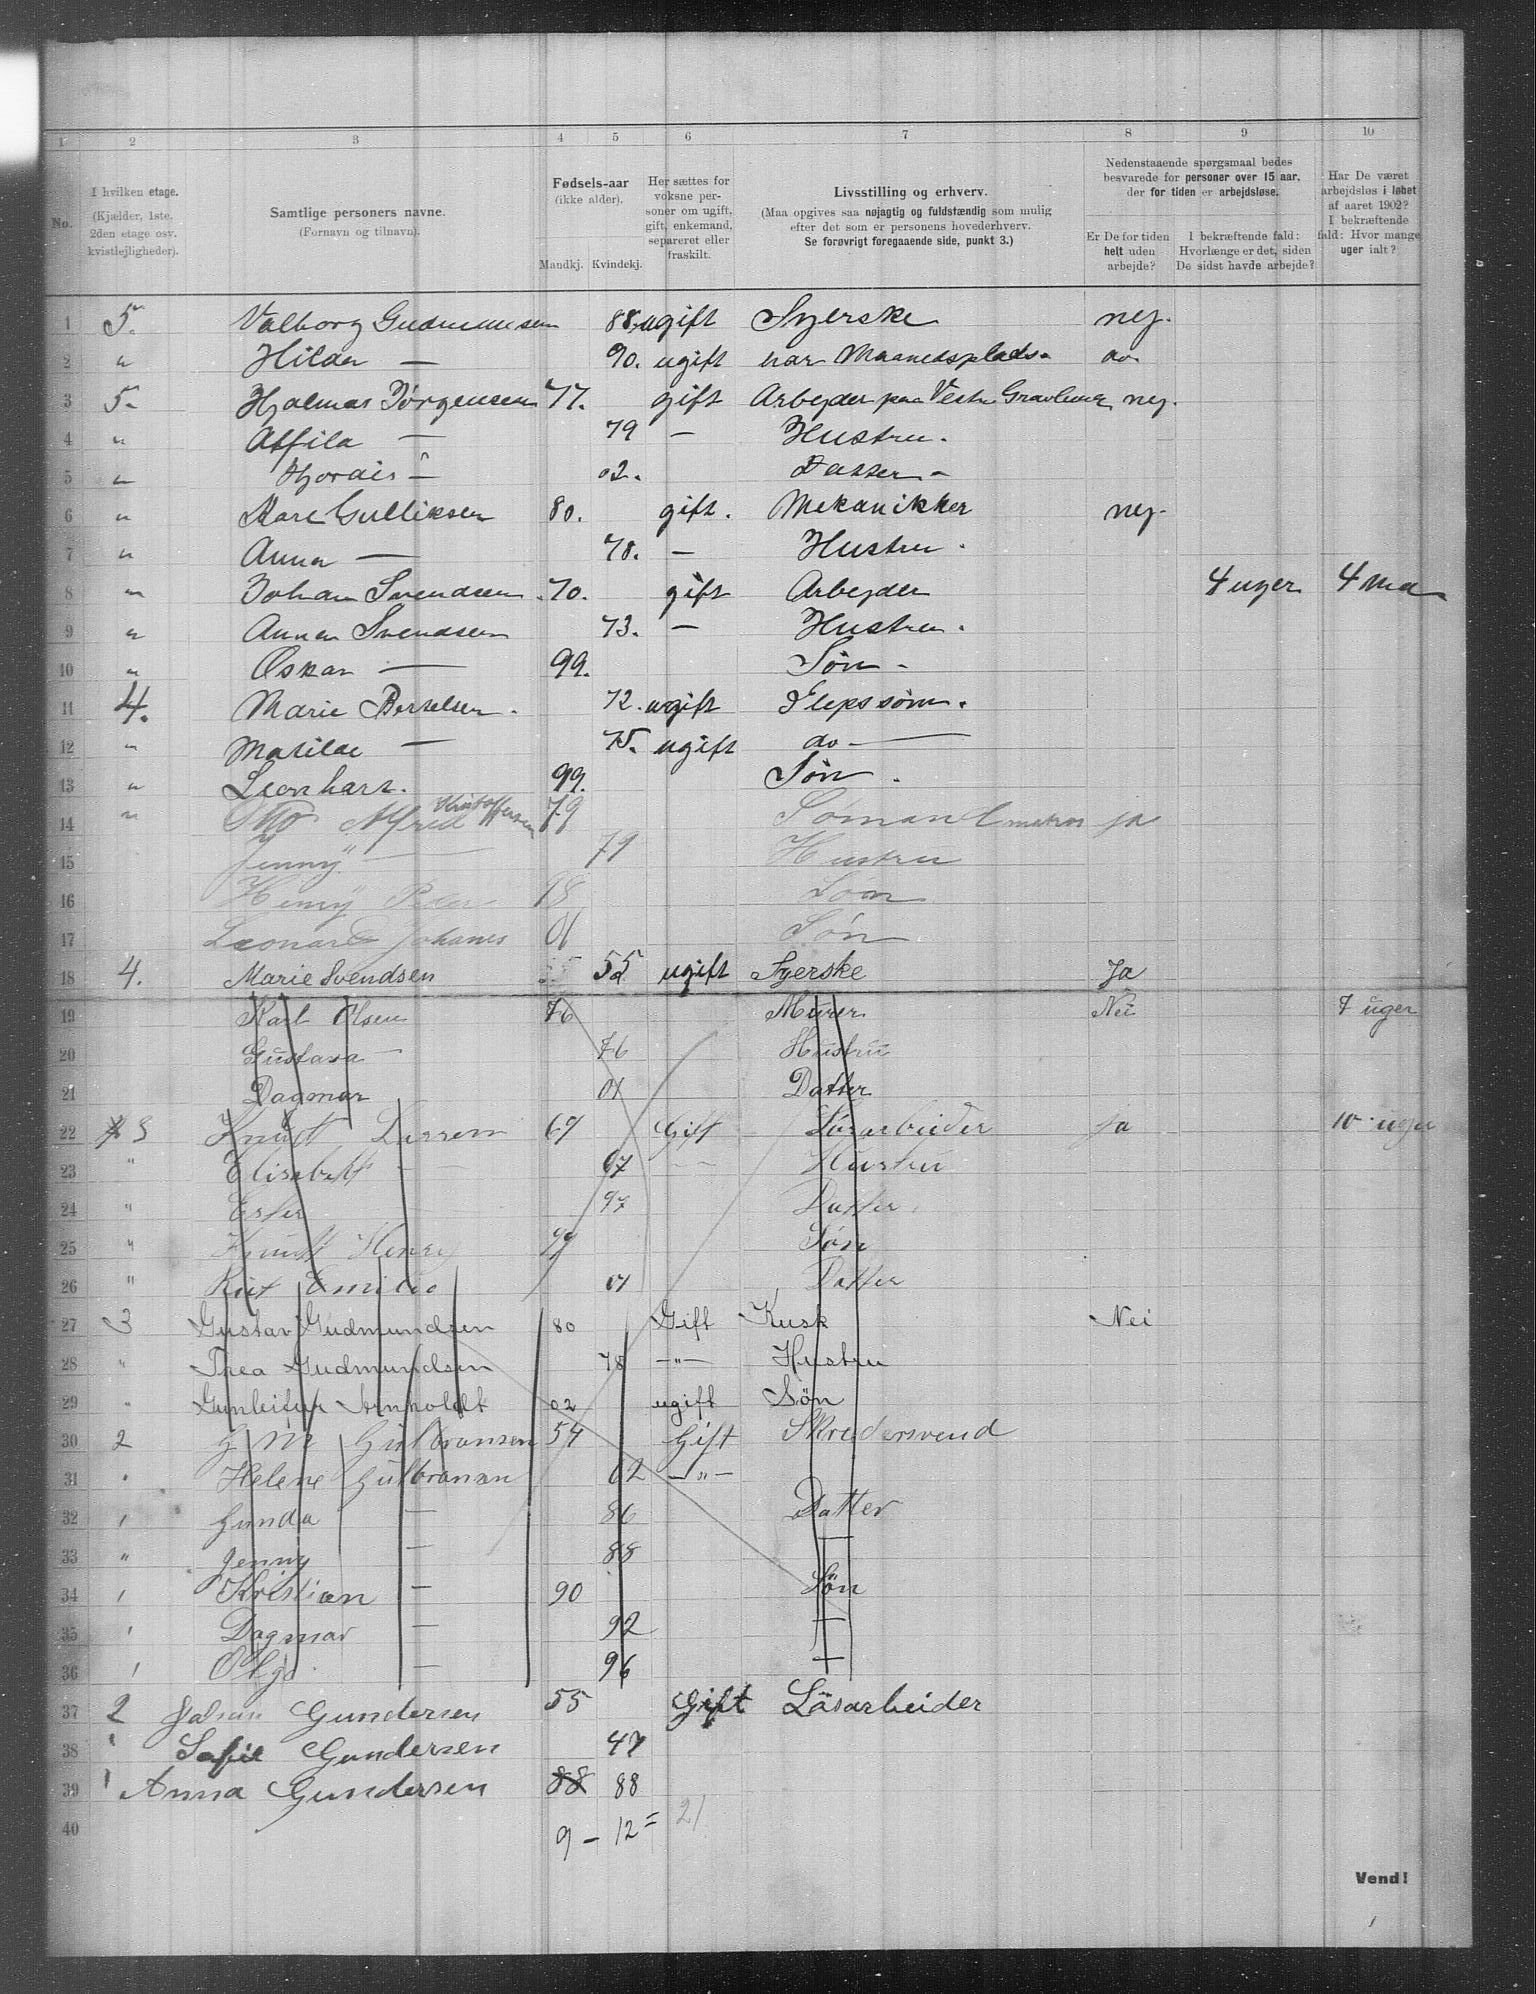 1 2 3 4 5 6 7 8 9 10
No.
I hvilken etage.
(Kjælder, 1ste,
2den etage osv.
kvistlejligheder).
Samtlige personers navne.
(Fornavn og tilnavn).
Fødsels-aar
(ikke alder).
Mandkj. Kvindekj.
Her sættes for
voksne per-
soner om ugift,
gift, enkemand,
separeret eller
fraskilt.
Livsstilling og erhverv.
(Maa opgives saa nøjagtig og fuldstændig som mulig
efter det som er personens hovederhverv.
Se forøvrigt foregaaende side, punkt 3.)
Nedenstaaende spørgsmaal bedes
besvarede for personer over 15 aar,
der for tiden er arbejdsløse.
Er De for tiden
helt uden
arbejde?
I bekræftende fald:
Hvorlænge er det, siden
De sidst havde arbejde?
Har De været
arbejdsløs i løbet
af aaret 1902?
I bekræftende
fald: Hvor mange
uger ialt?
1 5. Valborg Gudmunsen 88. ugift Syerske nej.
2 " Hilda — 90. ugift har Maanedsplads. do
3 5. Hjalmar Jørgensen 77. gift Arbejder paa Vestre Gravlund nej.
4 " Attila — 79 — Hustru.
5 " Hjordis — 02. Datter
6 " Kare Gulliksen 80. gift. Mekanikker nej.
7 " Anna — 78. — Hustru.
8 " Johan Svendsen 70. gift Arbejder 4 uger 4 Md
9 " Anna Svendsen 73. — Hustru.
10 " Oskar — 99. Søn
11 4. Marie Bertelsen. 72. ugift
12 " Matilde — 75. ugift do —
13 " Leonhart. 99. Søn.
14 " Otto Alfred Kristoffersen 79 Sømand ja
15 Jenny — 79 Hustru
16 Henry Peder 98 Søn
17 Leonard Johanes 01 Søn
18 4. Marie Svendsen 55 ugift Syerske Ja
19 Karl Olsen 76 Murer Nei 7 uger
20 Gustava — 76 Hustru
21 Dagmar 01 Datter
22 3 Knudt Larsen 67 Gift Løsarbeider Ja 10 uger
23 " Elisabett — 67 — Hustru
24 " Ester 97 Datter
25 " Knudt Henry 99 Søn
26 " Rut Emilie 01 Datter
27 3 Gustav Gudmundsen 80 Gift Kusk Nei
28 " Thea Gudmundsen 78 —"— Hustru
29 " Gunleifur Arnholdt 02 ugift Søn
30 2 Gulbransen 54 Gift Skredersvend
31 Helene Gulbransen 62 —"—
32 Gunda — 86 Datter
33 " Jenny — 88 —
34 Kristian — 90 Søn
35 Dagmar — 92 —
36 Olga — 96 —
37 2 Johan Gundersen 55 Gift Løsarbeider
38 Sofie Gundersen 47
39 Anna Gundersen 88 88
40 9 – 12 = 21
Vend!